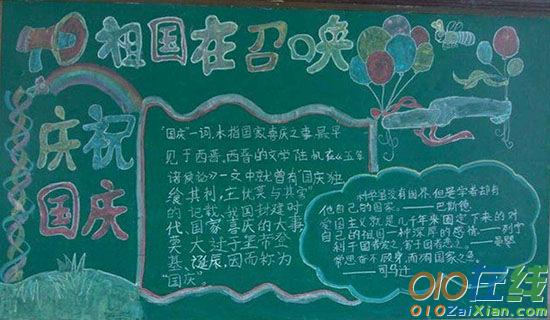 祖国在召唤
庆祝
国庆
"国庆"一词,本指国家喜庆之事,最早
见于西晋,西晋的文学
诸侯论》一文中就曾有"国庆独
飨其利,主忧莫与其害"
的记载,我国封建时
代、国家喜庆的大事
莫大过于皇帝登
基、诞辰,因而称为
"国庆"。
科学虽没有国界,但是学者却有
他自己的国家。——巴斯德
爱国主义就是几千年来固定下来的对
自己的祖国一种深厚的感情。——列宁
利于国者爱之,害于国者恶之。——晏婴
常思奋不顾身,而殉国家之急。
——司马迁
010在线
010ZaiXian.com